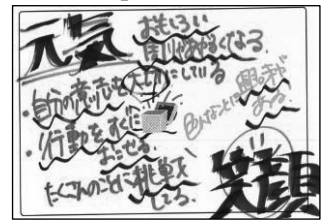 元気
おもしろい
周りが明るくなる
・自分の意志を大切にしている
色んなことに
興味が
ある
・行動をすぐに
おこせる
たくさんのことに挑戦
してる
笑顔